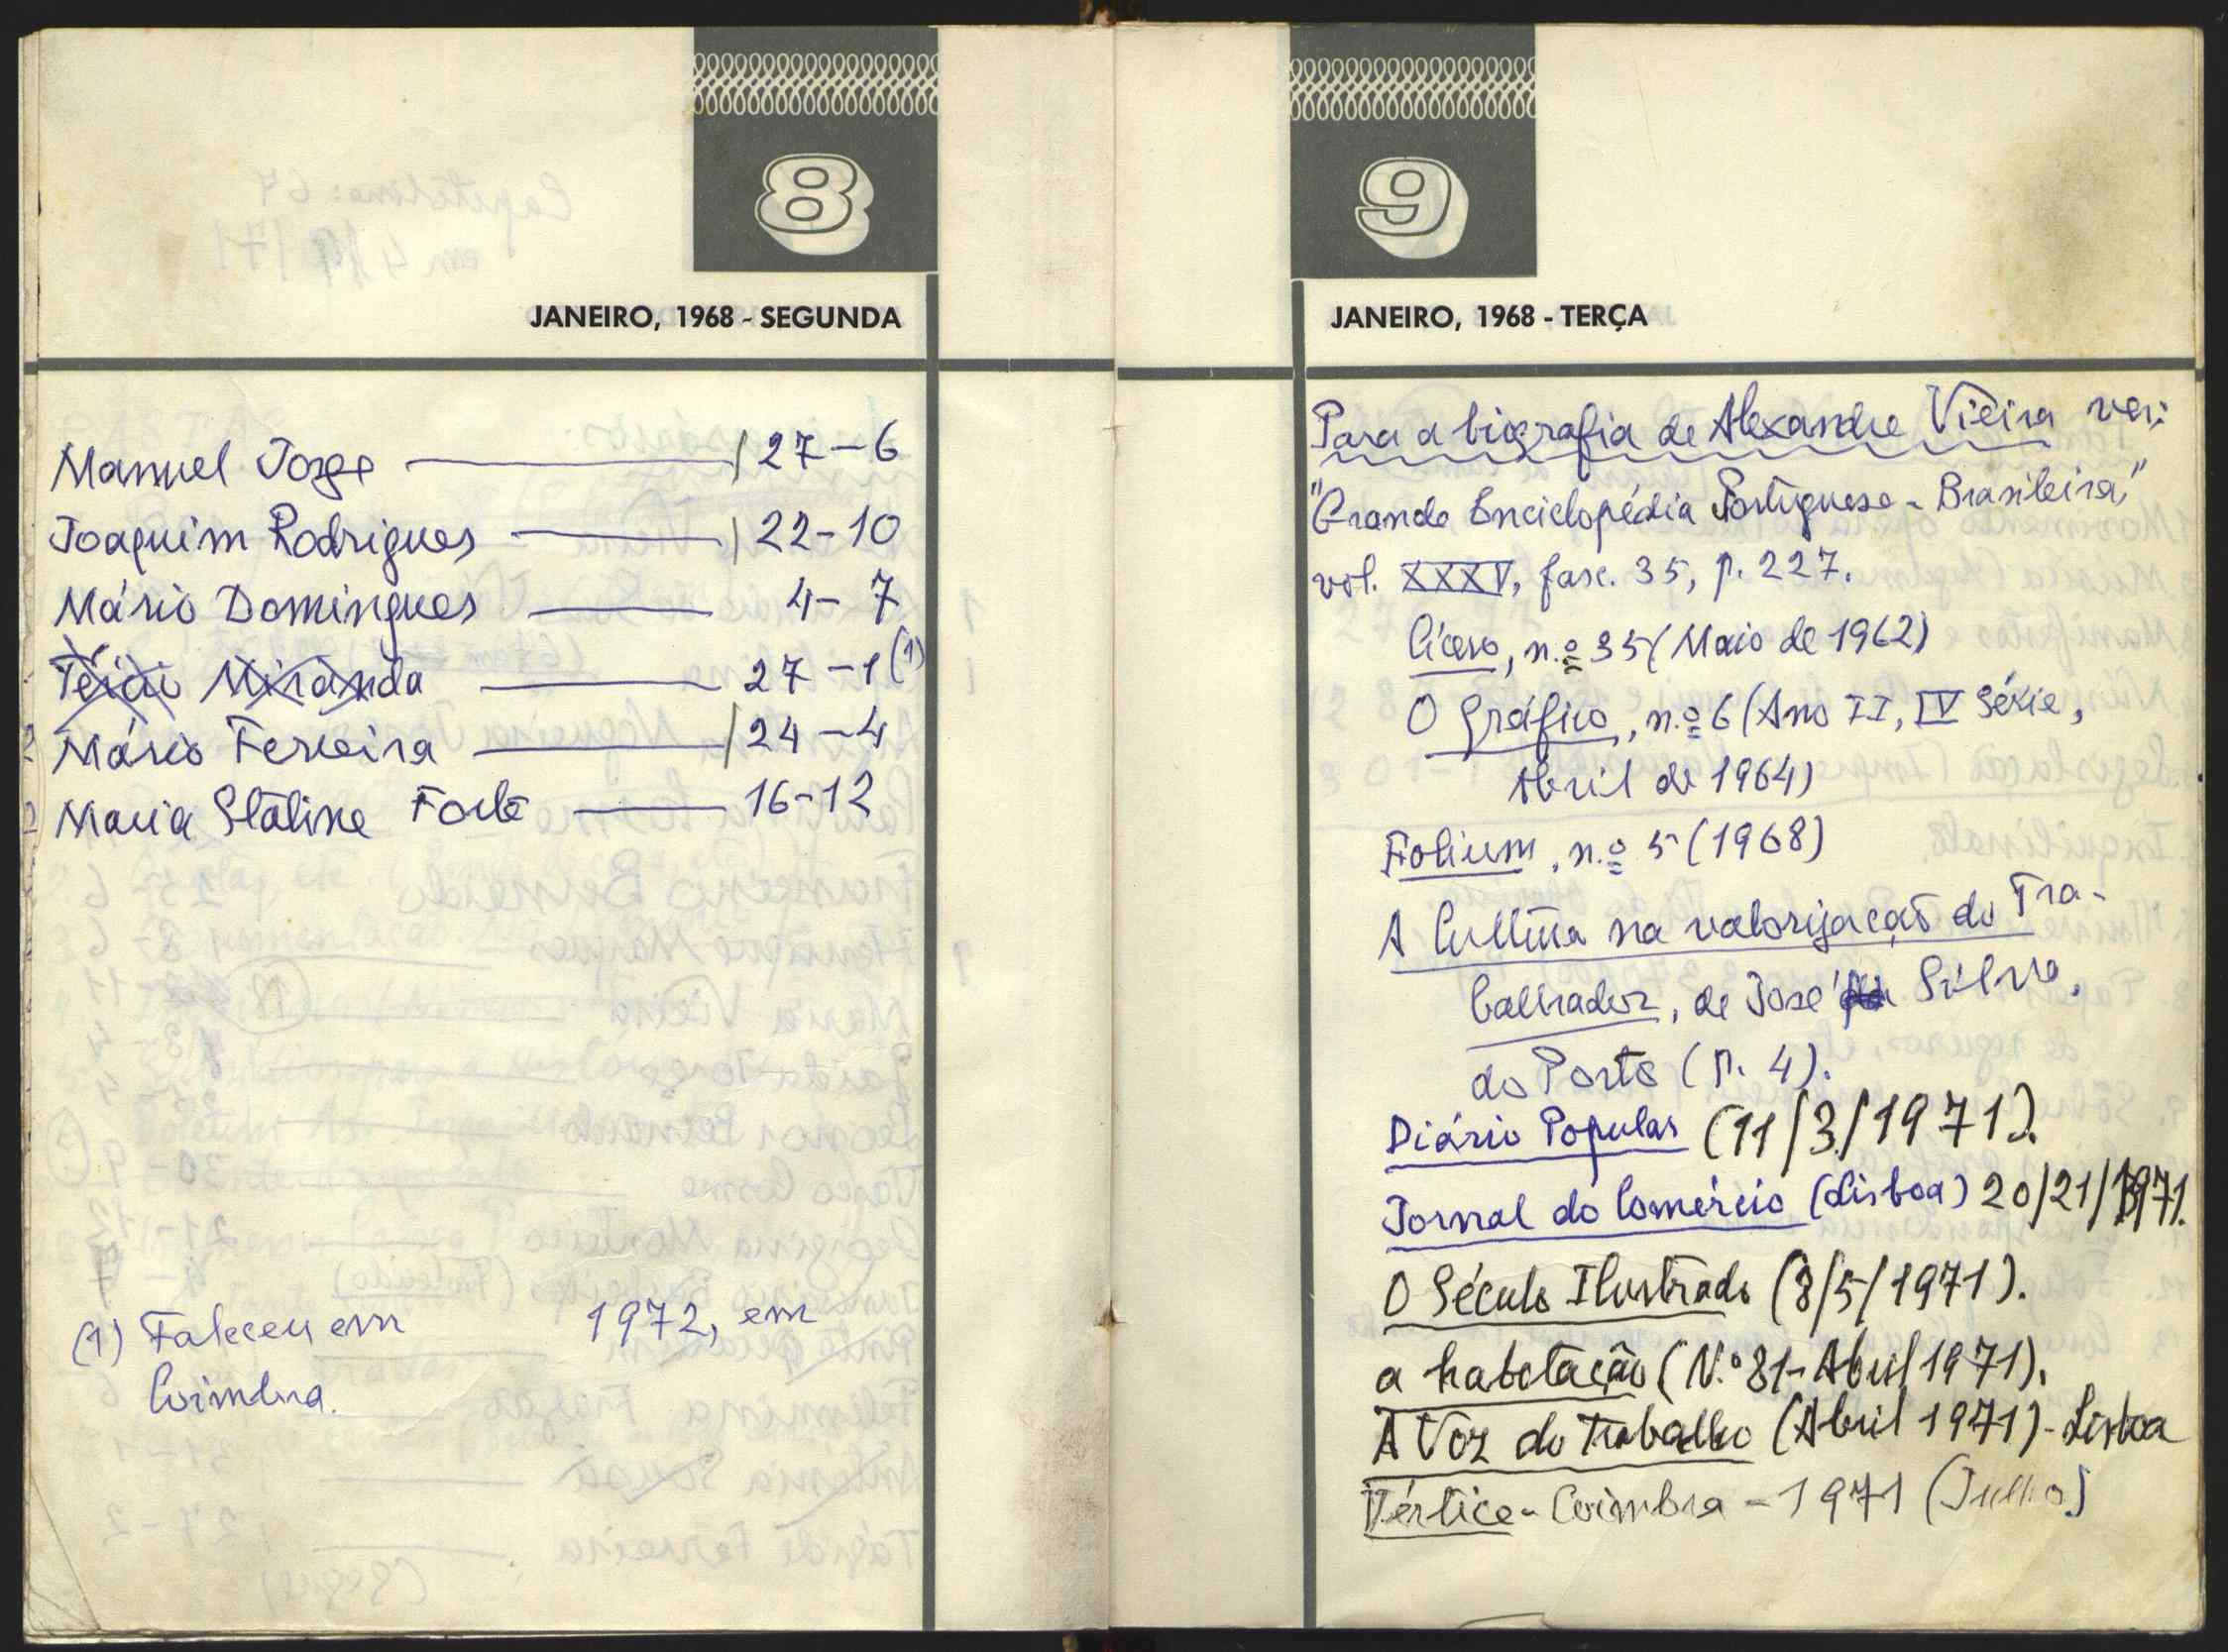 8
JANEIRO, 1968 - SEGUNDA
Manuel Jorge — / 27-6
Joaquim Rodrigues — / 22-10
Mário Domingues — 4-7
Miranda — 27-1 (1)
Mário Ferreira — / 24-4
Maria Staline Forte — 16-12
(1) Faleceu em 1972, em
Coimbra.
9
JANEIRO, 1968 - TERÇA
Para a biografia de Alexandre Vieira ver:
"Grande Enciclopédia Portuguesa - Brasileira,"
vol. XXXV, fasc. 35, p. 227.
Cícero, n.º 35 (Maio de 1962)
O Gráfico, n.º 6 (Ano II, IV Série,
Abril de 1964)
Folium, n.º 5 (1968)
A Cultura na valorização do Tra-
balhador, de José Silva,
do Porto (p. 4).
Diário Popular (11/3/1971).
Jornal do Comércio (Lisboa) 20/21/3/971.
O Século Ilustrado (8/5/1971).
a habitação (N.º 81-Abril 1971).
A Voz do Trabalho (Abril 1971)-Lisboa
Vértice - Coimbra - 1971 (Julho)